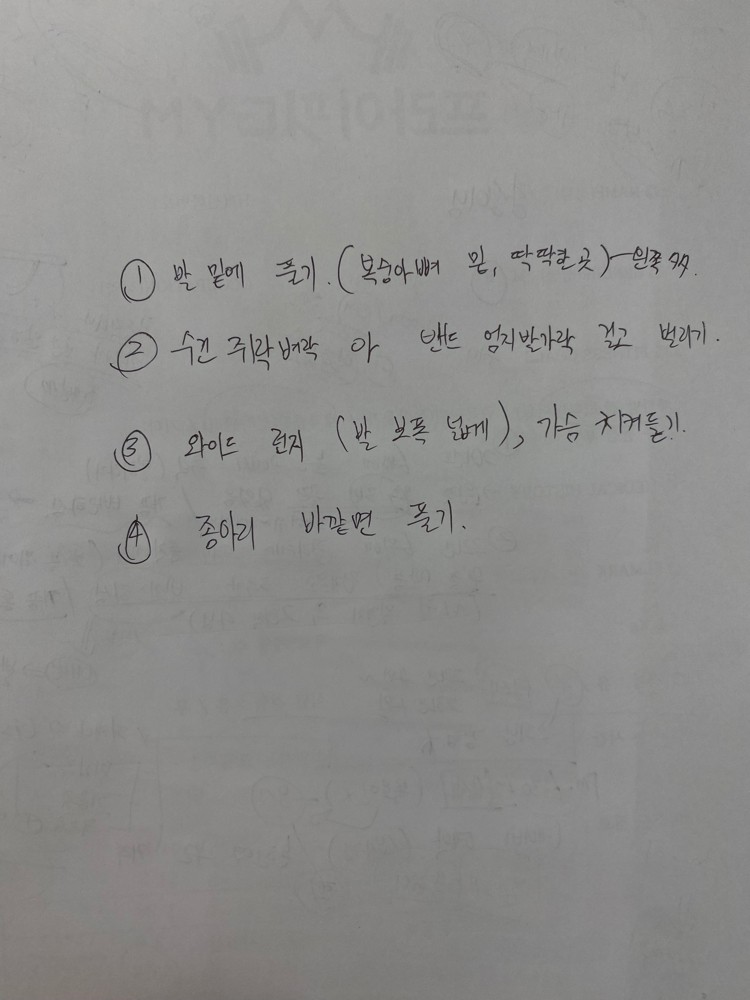 ① 발 밑에 풀기. (복숭아뼈 밑, 딱딱한 곳) - 왼쪽
② 수건 쥐락펴락 아 밴드 엄지발가락 걸고 벌리기.
③ 와이드 런지 (발 보폭 넓게), 가슴 치켜들기.
④ 종아리 바깥면 풀기.